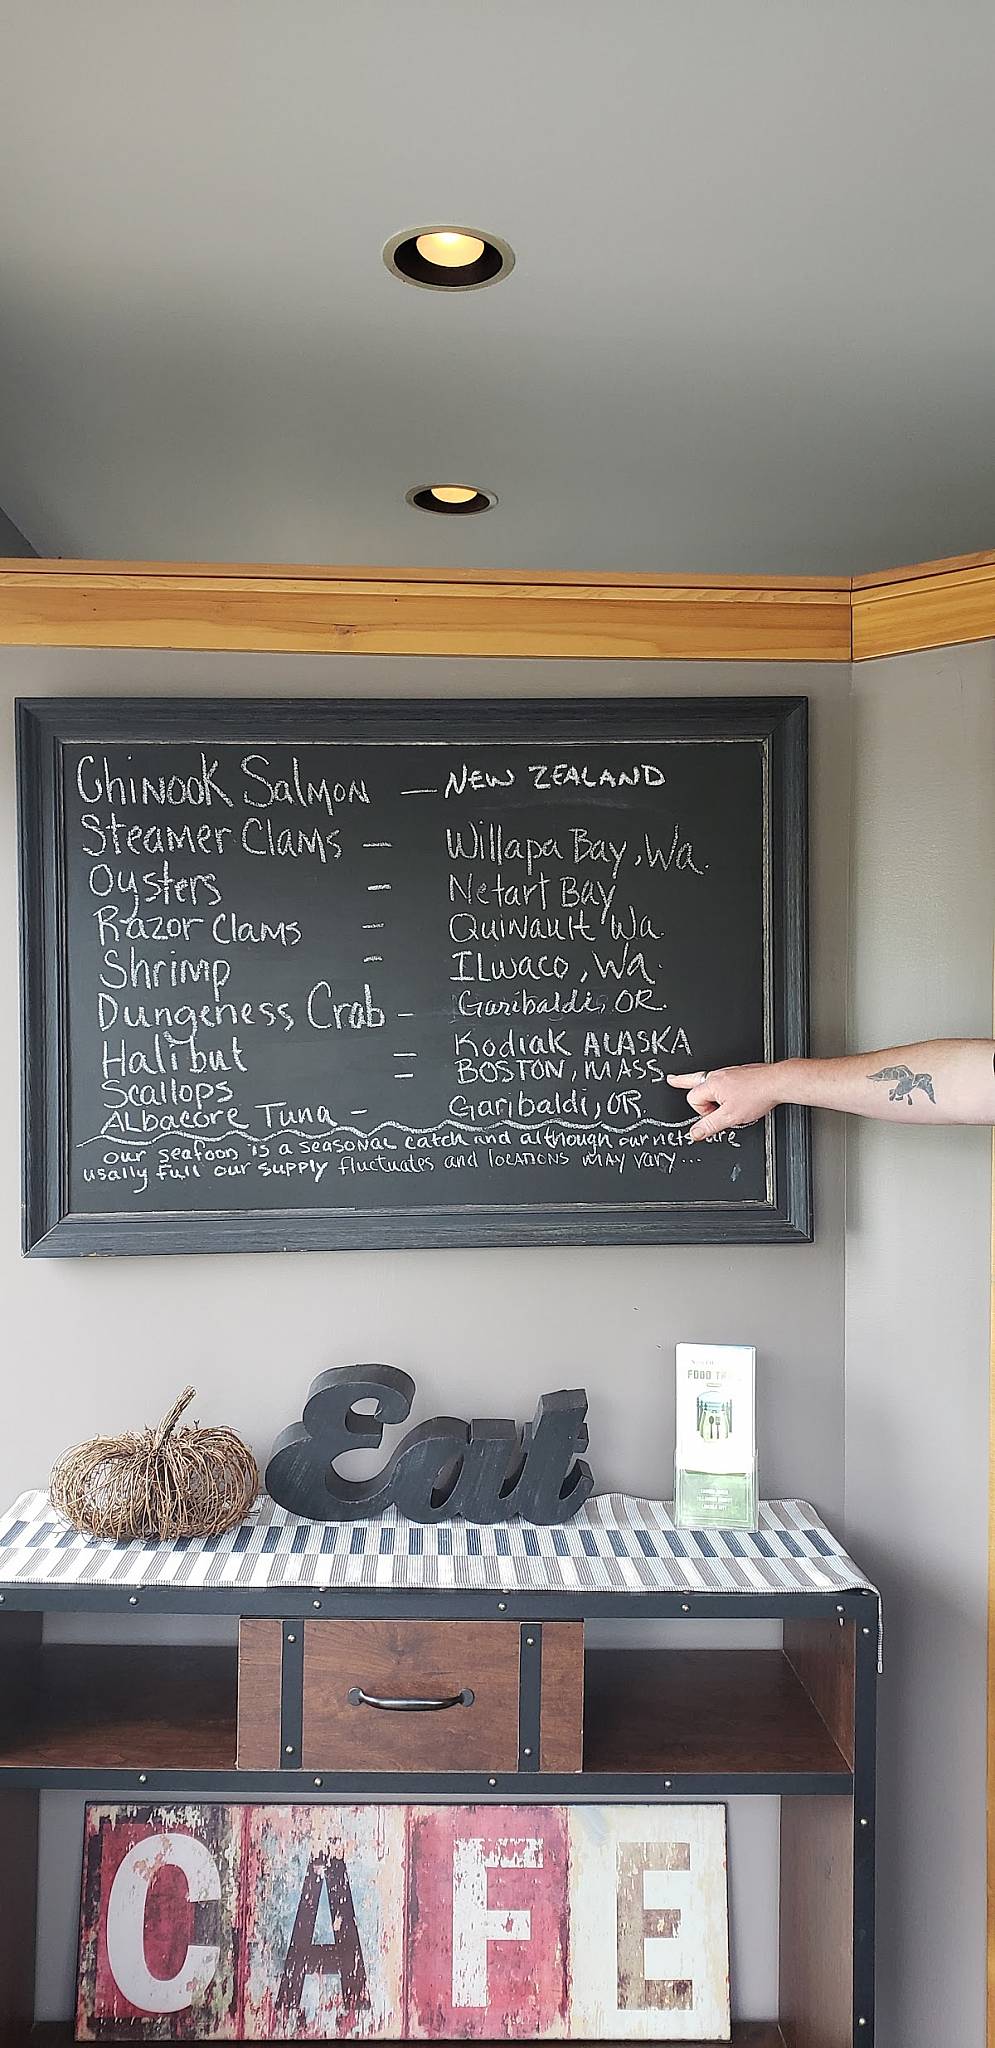 Chinook Salmon — NEW ZEALAND
Steamer Clams — Willapa Bay, Wa.
Oysters - Netart Bay
Razor Clams - Quinault Wa.
Shrimp - ILwaco, Wa.
Dungeness Crab - Garibaldi, OR.
Halibut - Kodiak ALASKA
Scallops - BOSTON, MASS
ALbacore Tuna - Garibaldi, OR.
our seafood is a seasonal catch and although our nets are
usally full our supply fluctuates and locations may vary...
Eat
FOOD
CAFE